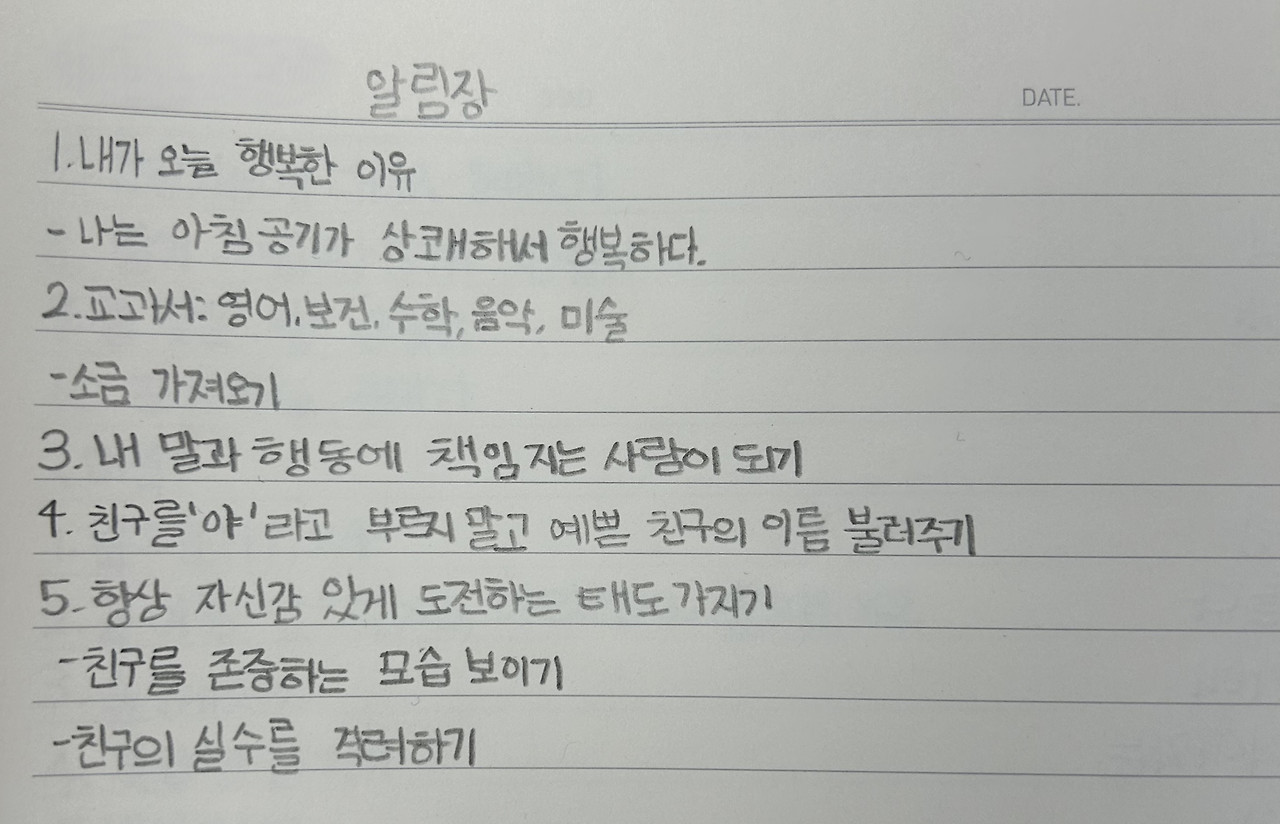 알림장
DATE.
1. 내가 오늘 행복한 이유
- 나는 아침 공기가 상쾌해서 행복하다.
2. 교과서: 영어, 보건, 수학, 음악, 미술
- 소금 가져오기
3. 내 말과 행동에 책임 지는 사람이 되기
4. 친구를 '야' 라고 부르지 말고 예쁜 친구의 이름 불러주기
5. 항상 자신감 있게 도전하는 태도 가지기
- 친구를 존중하는 모습 보이기
- 친구의 실수를 격려하기